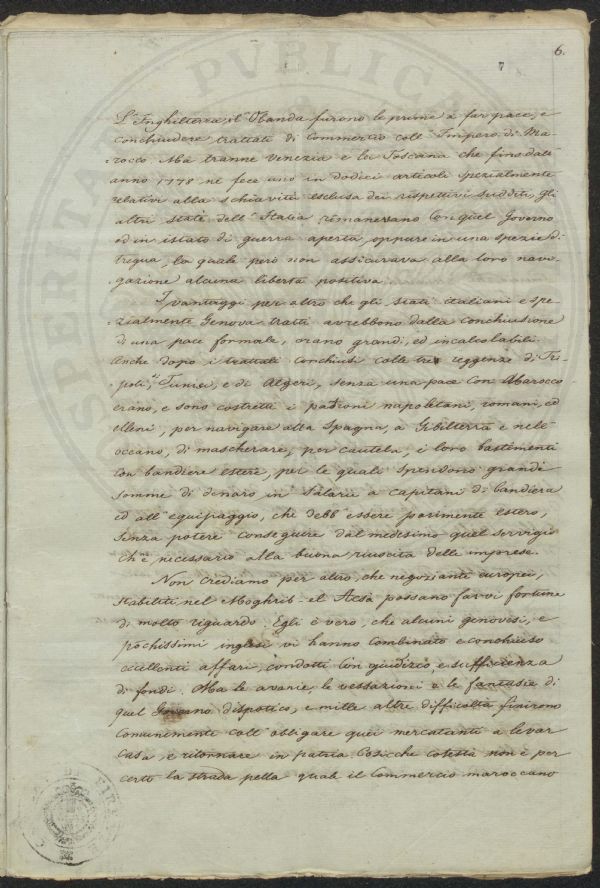 6.
7
L'Inghilterra il Olanda furono le prime a far pace, e
conchiudere trattati di Commercio coll' Impero di Ma-
-rocco Ma tranne Venezia e la Toscana che fin dall'
anno 1778, ne fece uno in dodici articoli spezialmente
relativi alla schiavitù esclusa dei rispettivi sudditi, gli
altri stati dell' Italia rimanevano con quel Governo
od in istato di guerra aperta, oppure in una spezie di
tregua, la quale però non assicurava alla loro navi-
gazione alcuna libertà positiva.
I vantaggi per altro che gli stati italiani e spe-
-zialmente Genova tratti avrebbono dalla conchiusione
di una pace formale, erano grandi, ed incalcolabili.
Anche dopo i trattati conchiusi colle tre reggenze di Tri-
poli, Tunisi, e di Algeri, senza una pace con Marocco
erano, e sono costretti i padroni napoletani, romani, ed
elleni, per navigare alla Spagna, a Gibilterra e nell'
oceano, di mascherare, per cautela, i loro bastimenti
con bandiere estere, per le quali spendono grandi
somme di denaro in salarii a capitani di bandiera
ed all' equipaggio, che debb' essere parimente estero,
senza potere conseguire dal medesimo quel servigio
ch' è necessario alla buona riuscita delle imprese.
Non crediamo, per altro, che negozianti europei,
stabiliti nel Moghrib-el Acsà possano farvi fortune
di molto riguardo. Egli è vero, che alcuni genovesi, e
pochissimi inglesi vi hanno combinato e conchiuso
eccellenti affari, condotti con giudizio e sufficienza
di fondi. Ma le avarie, le vessazioni e le fantasie di
quel Governo dispotico, e mille altre difficoltà finirono
comunemente coll' obbligare quei mercatanti a levar
casa, e ritornare in patria. Cosicchè cotesta non è per
certo la strada pella quale il Commercio maroccano